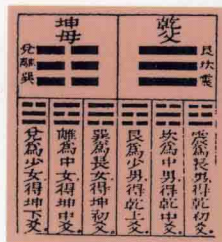 乾父
震
坎
艮
坤母
巽
離
兌
震爲長男得乾初爻
坎爲中男得乾中爻
艮爲少男得乾上爻
巽爲長女得坤初爻
離爲中女得坤中爻
兌爲少女得坤下爻